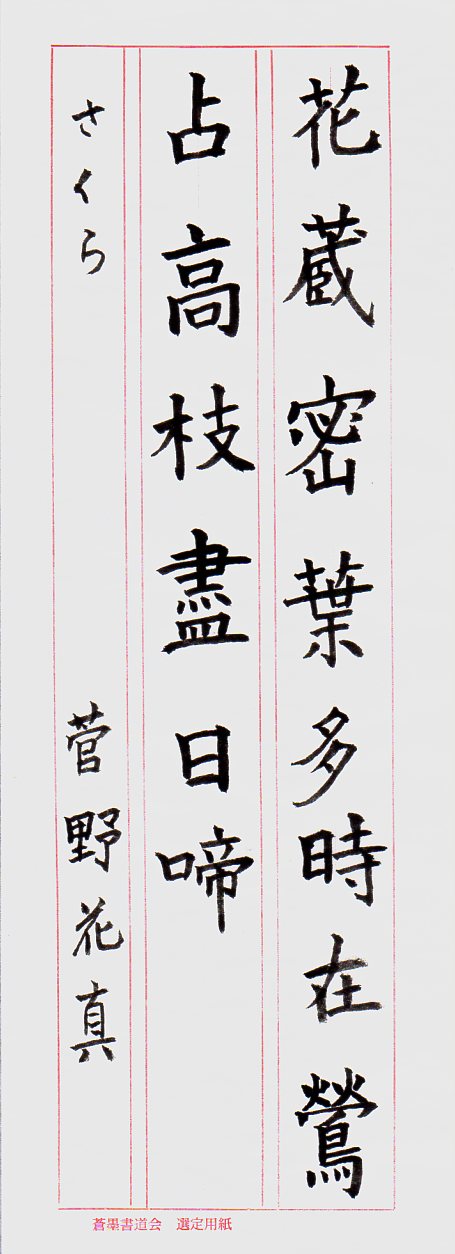 花蔵密葉多時在鶯
占高枝盡日啼
さくら 菅野花真
蒼墨書道会 選定用紙